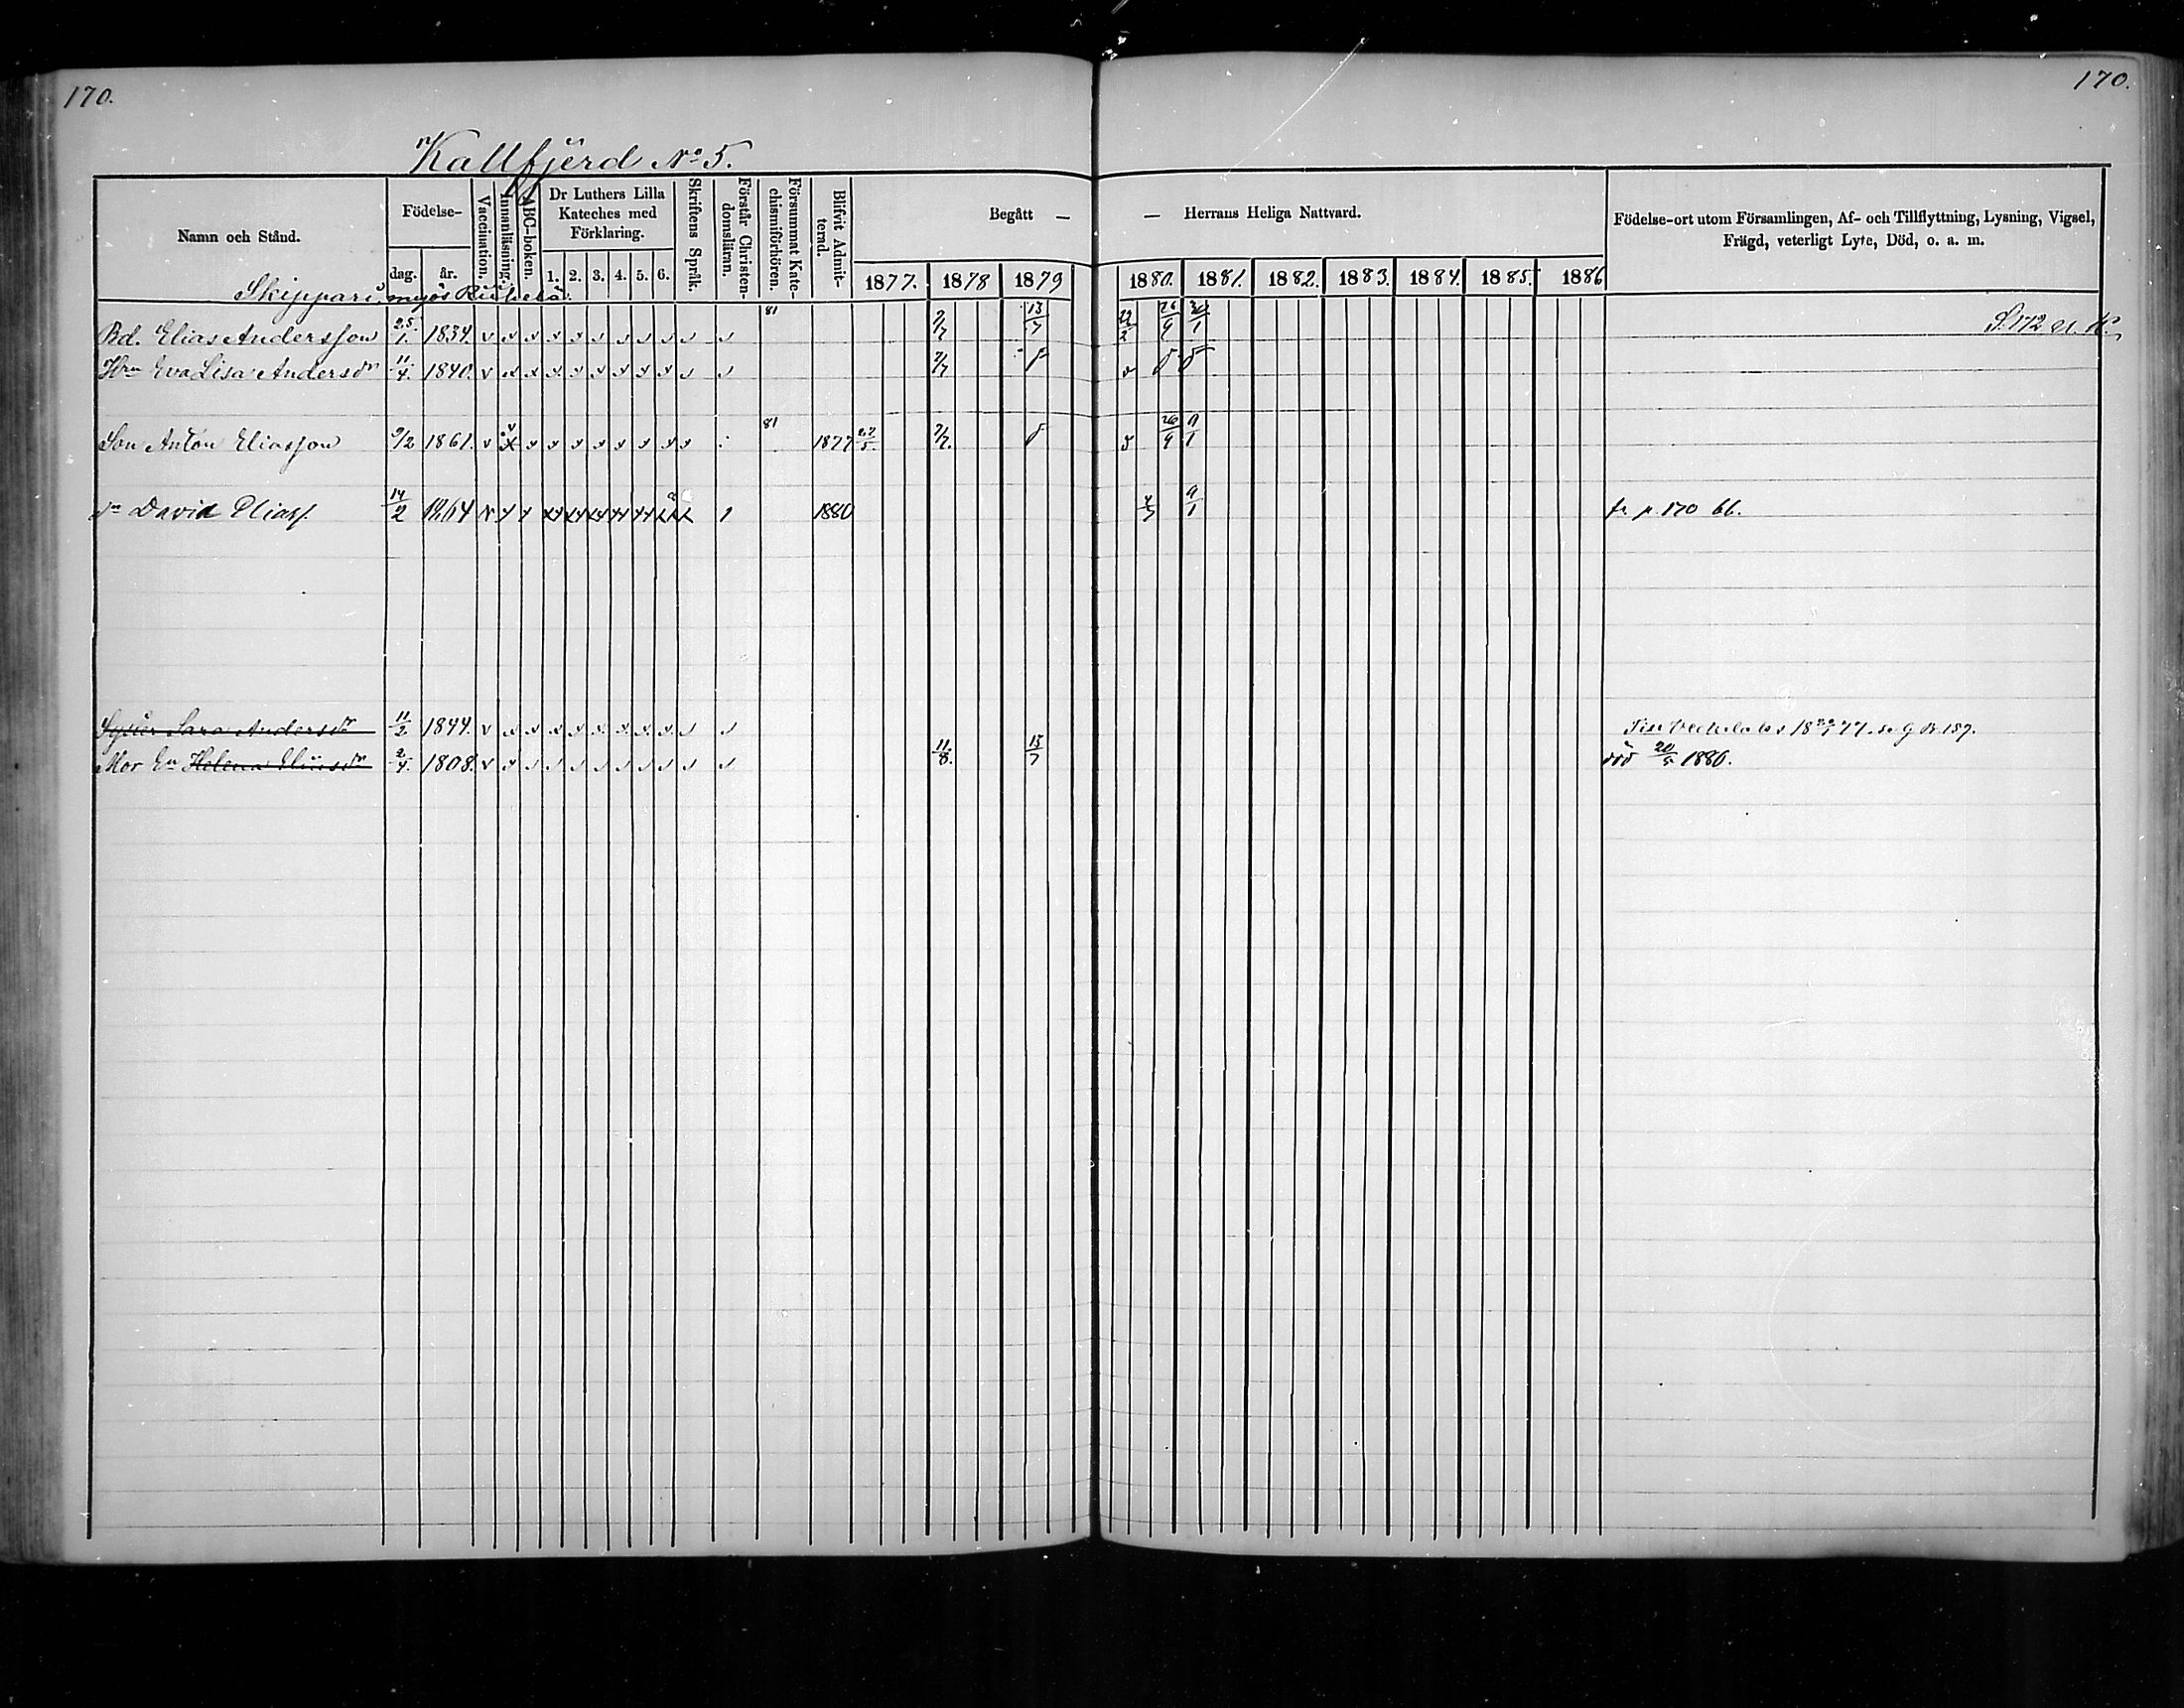 170.
170.
Kallfjerd No 5.
Namn och Stånd.
Födelse-
dag.
år.
Vaccination.
Innanläsning.
ABC-boken.
Dr Luthers Lilla Kateches med Förklaring.
1. 2. 3. 4. 5. 6.
Skriftens Språk.
Förstår Christendomsläran.
Försummat Katechismiförhören.
Blifvit Admitterad.
Begått —
— Herrans Heliga Nattvard.
1877. 1878 1879 1880. 1881. 1882. 1883. 1884. 1885. 1886
Födelse-ort utom Församlingen, Af- och Tillflyttning, Lysning, Vigsel, Frägd, veterligt Lyte, Död, o. a. m.
Skippari, myös
Bd. Elias Andersson 25/1. 1834. 81 7/7 13/7 22/2 26/9 S. 172
Hru Eva Lisa Andersdr 11/4. 1840. 7/7
Son Anton Eliasson 9/2 1861. 81 1877 27/5. 7/7. 26/9 9/1
dn David Eliass. 14/2 1864 1880 4/7 9/1 fr. p. 170 bb.
Syster Sara Andersdr 11/2 1844. 187.
Mor En Helena Eliasdr 2/4. 1808. 11/8. 13/7 död 20/5 1880.